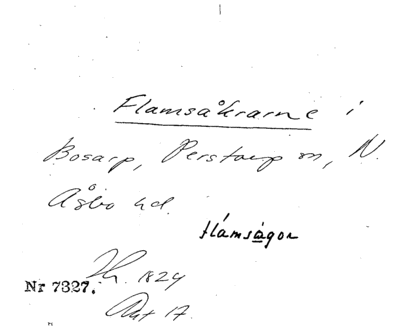 Flamsåkrarne i
Bosarp, Perstorp sn, N.
Åsbo hd.
flámsågor
Nr 7327. 1824
Akt 17.